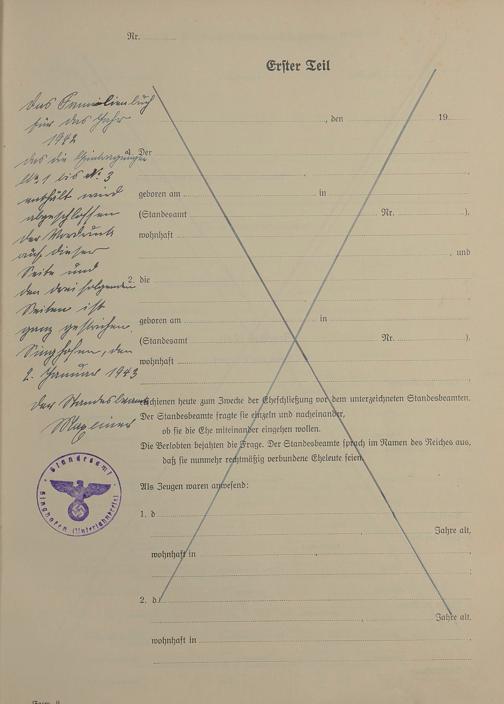 Nr.
Erster Teil
Das Familienbuch
für das Jahr
1942
das die Eintragungen
Nr. 1 bis Nr. 3
enthält wird
abgeschlossen
Der Vordruck
auf dieser
Seite und
den drei folgenden
Seiten ist
ganz gestrichen.
Singhofen, den
2. Januar 1943
Der Standesbeamte
, den 19
1. Der
geboren am in
(Standesamt Nr. ).
wohnhaft
, und
2. die
geboren am in
(Standesamt Nr. ).
wohnhaft
erschienen heute zum Zwecke der Eheschließung vor dem unterzeichneten Standesbeamten.
Der Standesbeamte fragte sie einzeln und nacheinander,
ob sie die Ehe miteinander eingehen wollen.
Die Verlobten bejahten die Frage. Der Standesbeamte sprach im Namen des Reiches aus,
daß sie nunmehr rechtmäßig verbundene Eheleute seien.
Als Zeugen waren anwesend:
1. d
Jahre alt,
wohnhaft in
2. d
Jahre alt,
wohnhaft in
Standesamt
Singhofen (Unterlahnkreis)